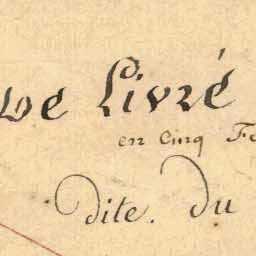 De Livré
en Cinq
dite. du